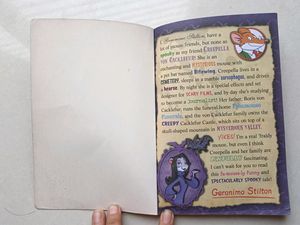 I, Geronimo Stilton, have a
lot of mouse friends, but none as
spooky as my friend CREEPELLA
VON CACKLEFUR! She is an
enchanting and MYSTERIOUS mouse with
a pet bat named Bitewing. Creepella lives in a
CEMETERY, sleeps in a marble sarcophagus, and drives
a hearse. By night she is a special effects and set
designer for SCARY FILMS, and by day she's studying
to become a journalist! Her father, Boris von
Cacklefur, runs the funeral home Fabumouse
Funerals, and the von Cacklefur family owns the
CREEPY Cacklefur Castle, which sits on top of a
skull-shaped mountain in MYSTERIOUS VALLEY.
YIKES! I'm a real 'fraidy
mouse, but even I think
Creepella and her family are
fascinating.
I can't wait for you to read
this fa-mouse-ly funny and
SPECTACULARLY SPOOKY tale!
Geronimo Stilton